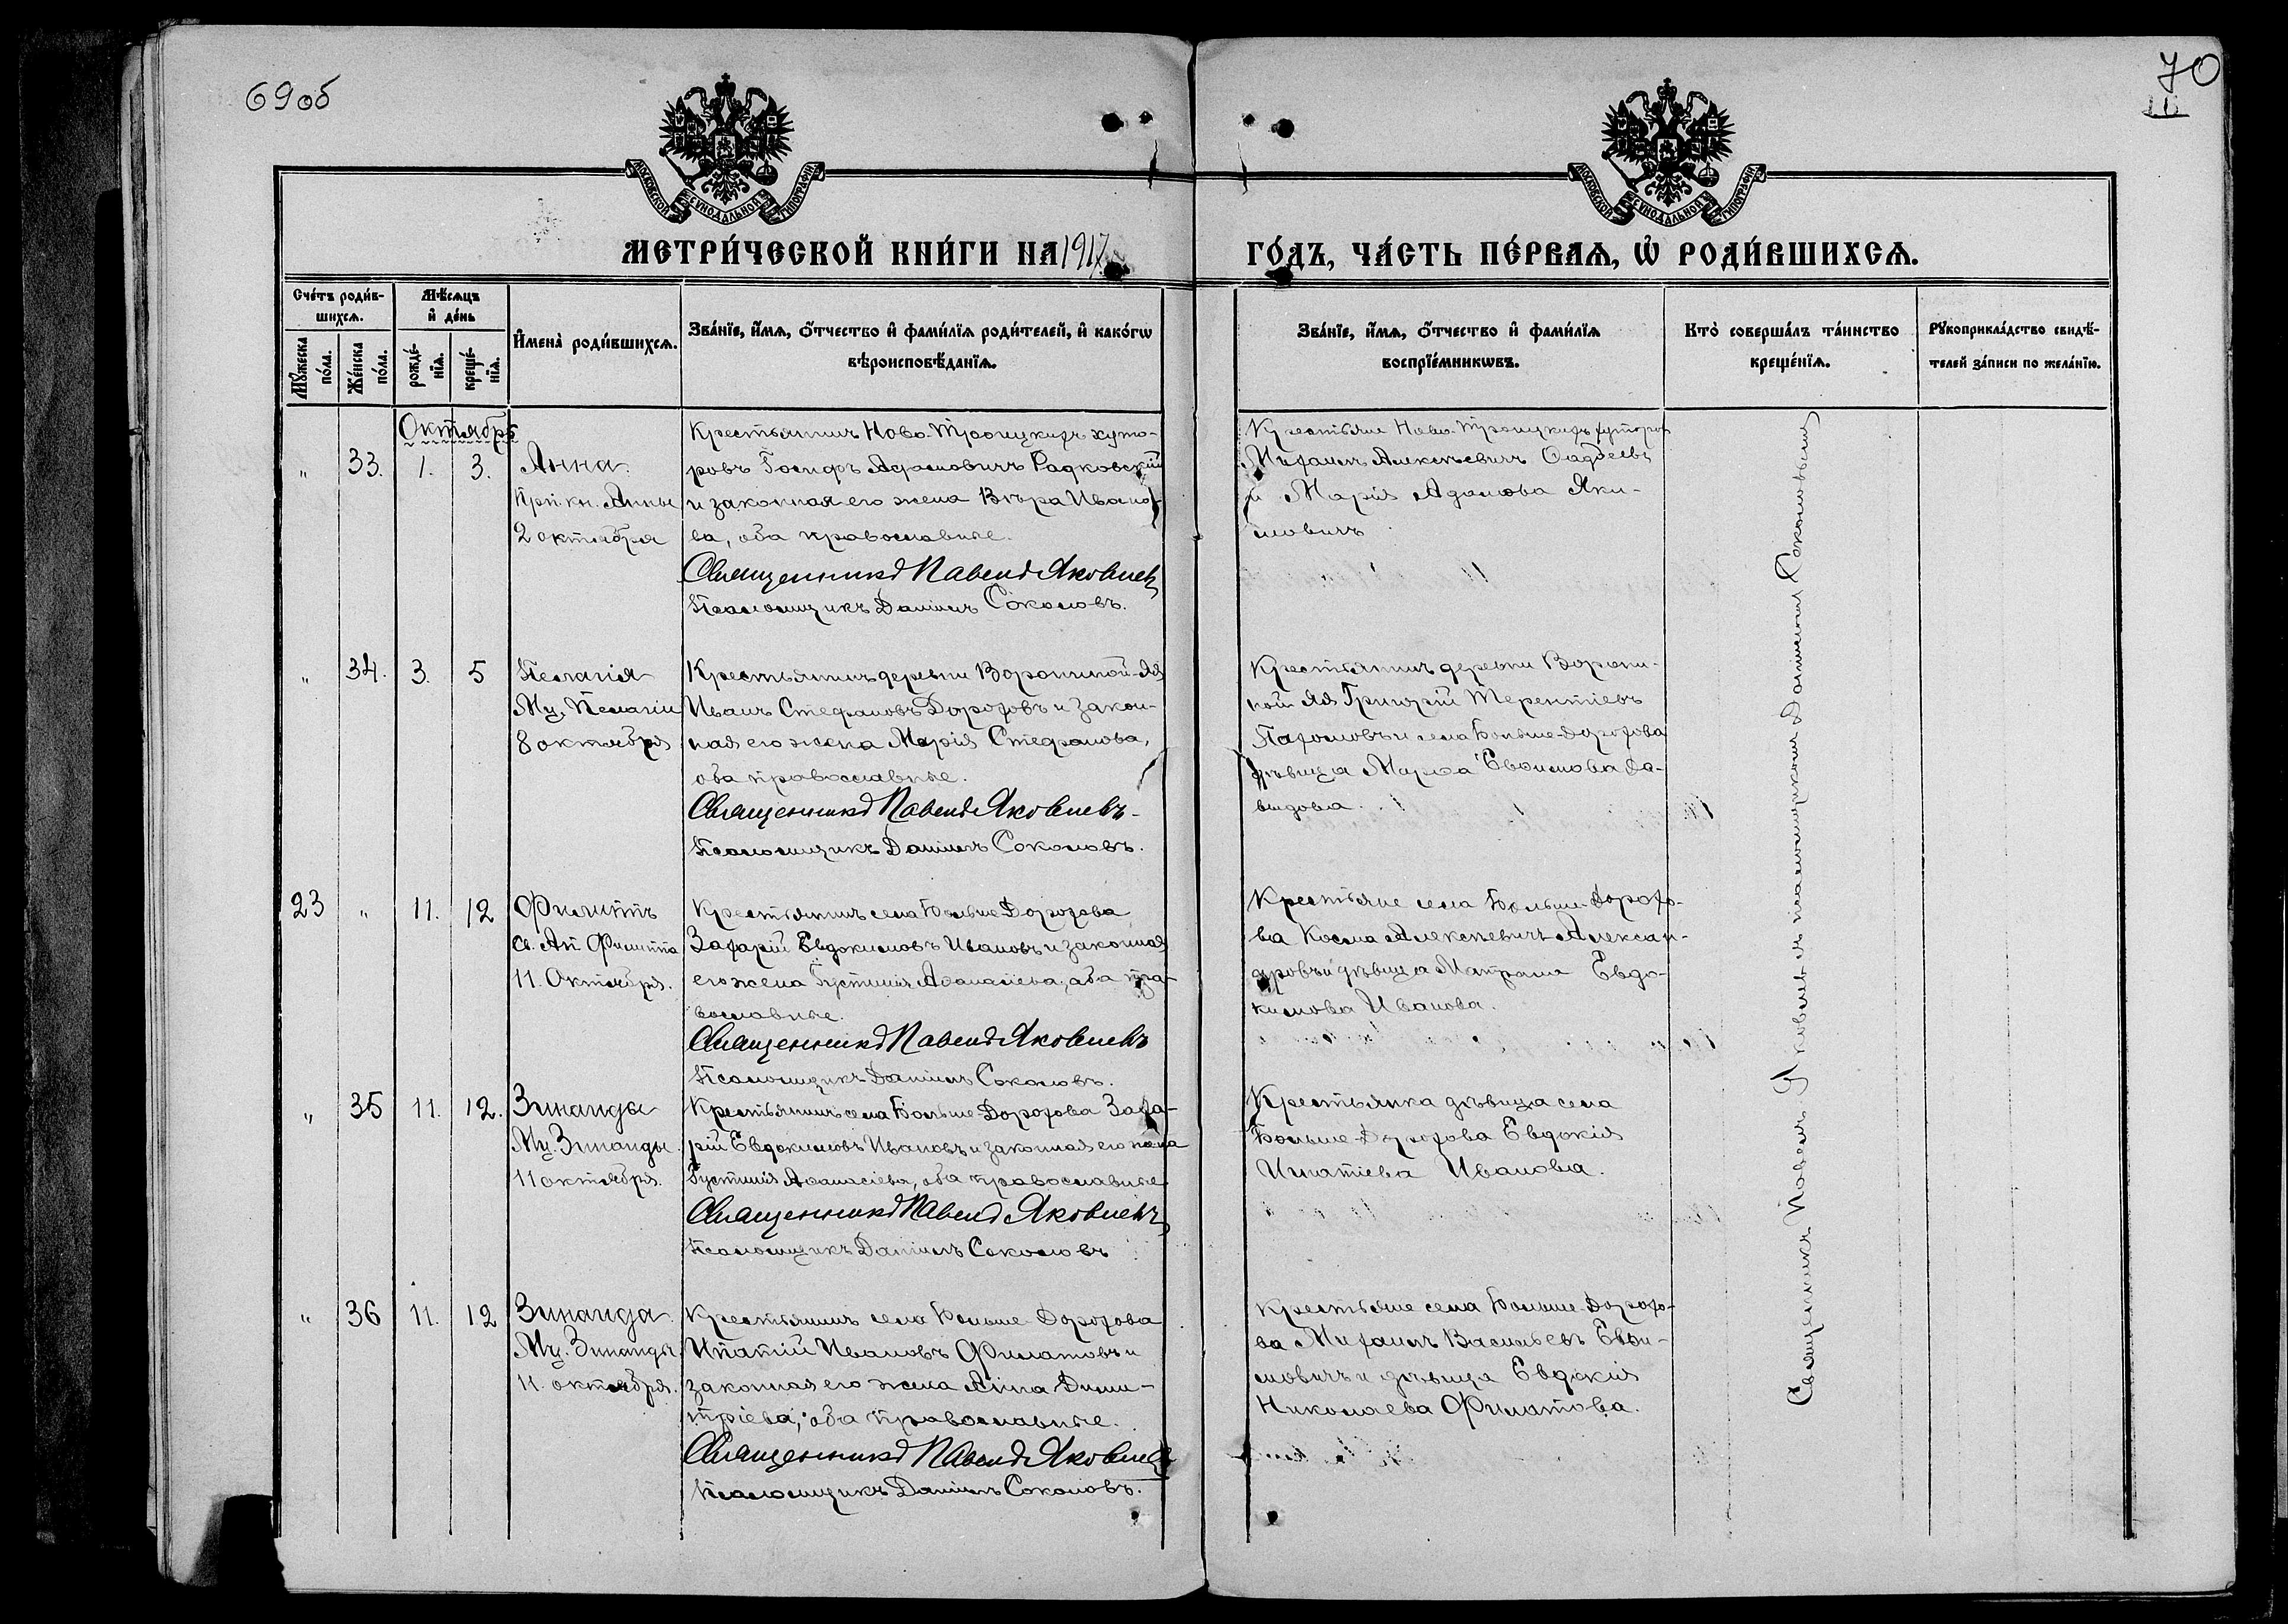 69 об
70
МОСКОВСКОЙ СѴНОДАЛЬНОЙ ТИПОГРАФІИ
МОСКОВСКОЙ СѴНОДАЛЬНОЙ ТИПОГРАФІИ
МЕТРИ́ЧЕСКОЙ КНИ́ГИ НА 1917
ГО́ДЪ, ЧА́СТЬ ПЕ́РВАѦ, Ѡ҆ РОДИ́ВШИХСѦ.
Сче́тъ роди́в-
шихсѧ.
Мѣ́сѧцъ
и҆ де́нь
Мꙋ́жеска
по́ла.
Же́нска
по́ла.
рожде́-
нїѧ.
креще́-
нїѧ.
И҆мена̀ роди́вшихсѧ.
Зва́нїе, и҆́мѧ, ѻ҆́тчество и҆ фами́лїѧ роди́телей, и҆ како́гѡ
вѣроисповѣ́данїѧ.
Зва́нїе, и҆́мѧ, ѻ҆́тчество и҆ фами́лїѧ
воспрїе́мникѡвъ.
Кто̀ соверша́лъ та́инство
креще́нїѧ.
Рꙋкоприкла́дство свидѣ́-
телей за́писи по жела́нїю.
Октябрь
" 33. 1. 3. Анна
Прп. кн. Анны
2 октября
Крестьянинъ Ново-Троицкихъ хуто-
ровъ Іосифъ Адамовичъ Радковскій
и законная его жена Вѣра Ивано-
ва, оба православные.
Священникъ Павелъ Яковлевъ
Псаломщикъ Даніилъ Соколовъ.
Крестьяне Ново-Троицкихъ хуторовъ
Михаилъ Алексѣевичъ
и Марія Адамова Яки-
мовичъ
" 34. 3. 5 Пелагія
Мц. Пелагіи
8 октября
Крестьянинъ деревни Воропиной-Яя
Иванъ Стефановъ Дороховъ и закон-
ная его жена Марія Стефанова,
оба православные.
Священникъ Павелъ Яковлевъ
Псаломщикъ Даніилъ Соколовъ.
Крестьянинъ деревни Воропи-
ной Яя Григорій Терентіевъ
Пахомовъ и села Больше-Дорохова
дѣвица Марѳа Евѳимова Да-
выдова.
23 " 11. 12 Филиппъ
Св. Ап. Филиппа
11. Октября.
Крестьянинъ села Больше Дорохова
Захарій Евдокимовъ Ивановъ и законная
его жена Іустинія Аѳанасіева, оба пра-
вославные.
Священникъ Павелъ Яковлевъ
Псаломщикъ Даніилъ Соколовъ.
Крестьяне села Больше-Дорохо-
ва Косма Алексѣевичъ Алексан-
дровъ и дѣвица Матрона Евдо-
кимова Иванова.
" 35 11. 12. Зинаиды
Мц. Зинаиды
11 октября.
Крестьянинъ села Больше Дорохова Заха-
рій Евдокимовъ Ивановъ и законная его жена
Іустинія Аѳанасіева, оба православные
Священникъ Павелъ Яковлевъ
Псаломщикъ Даніилъ Соколовъ
Крестьянка дѣвица села
Больше-Дорохова Евдокія
Игнатіева Иванова.
" 36 11. 12 Зинаида
Мц. Зинаиды
11. октября.
Крестьянинъ села Больше-Дорохова
Ипатій Ивановъ Филатовъ и
законная его жена Анна Дими-
тріева, оба православные.
Священникъ Павелъ Яковлевъ
Псаломщикъ Даніилъ Соколовъ.
Крестьяне села Больше-Дорохо-
ва Михаилъ Васильевъ Евѳи-
мовичъ и дѣвица Евдокія
Николаева Филатова.
Священникъ Павелъ Яковлевъ съ псаломщикомъ Даніиломъ Соколовымъ